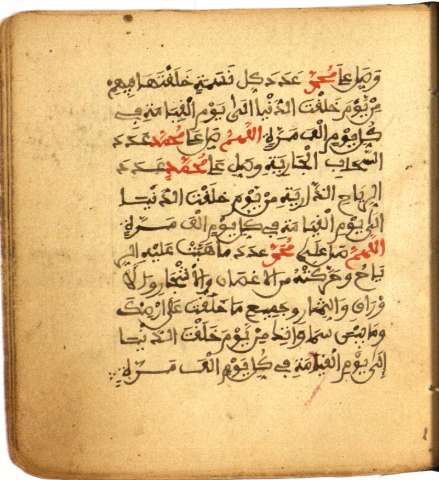 وصل على محمد عدد كل نسمة خلقتها فيهم
من يوم خلقت الدنيا الى يوم القيامة في
كل يوم الف مرة اللهم صل على محمد عدد
السحاب الجارية وصل على محمد عدد
الرياح الذارية من يوم خلقت الدنيا
الى يوم القيامة في كل يوم الف مرة
اللهم صل على محمد عدد ما هبت عليه الر
ياح وحركته من الاغصان والاشجار والا
وراق والثمار وجميع ما خلقت على ارضك
وما بين سماواتك من يوم خلقت الدنيا
الى يوم القيامة في كل يوم الف مرة